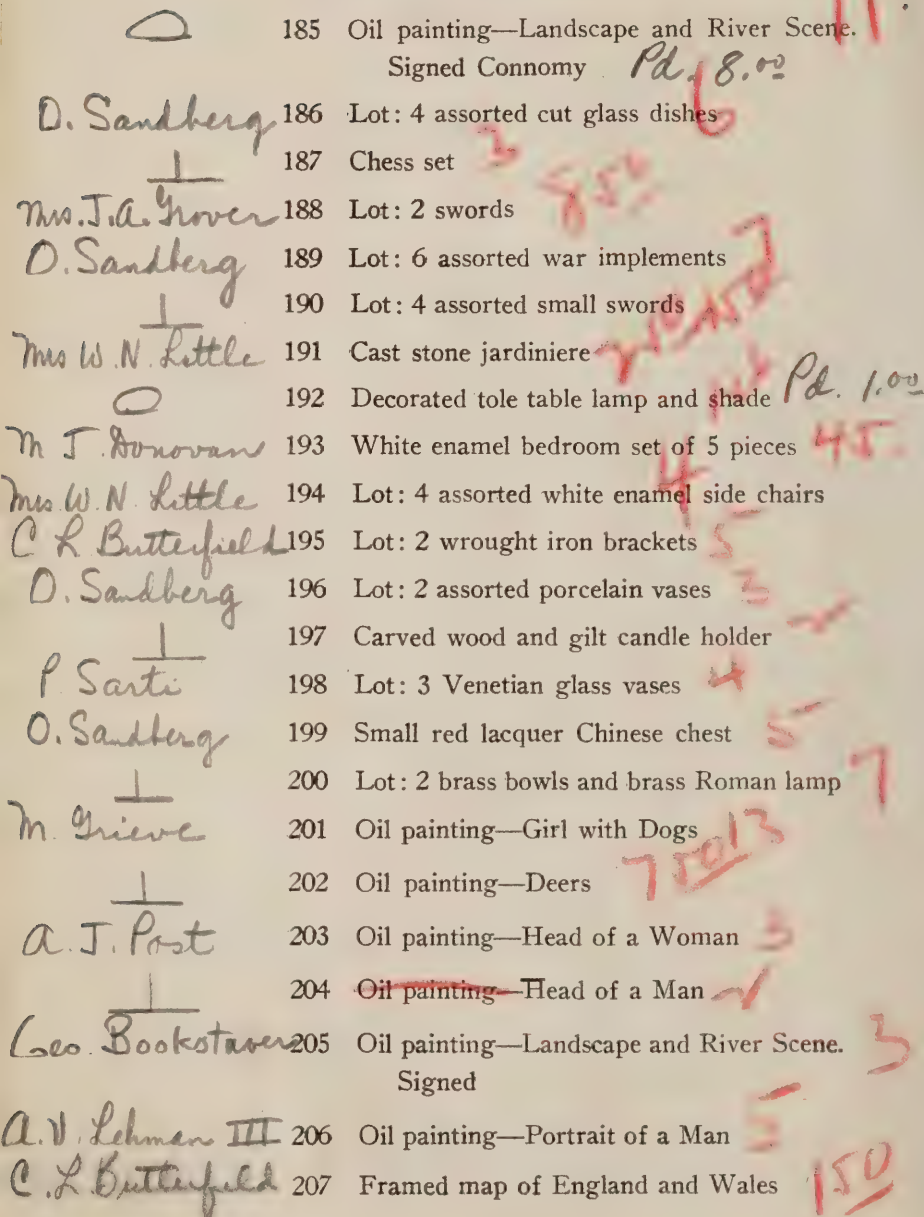 185 Oil painting—Landscape and River Scene. 11
Signed Connomy Pd. 8.00
O. Sandberg 186 Lot: 4 assorted cut glass dishes 6
187 Chess set 3
Mrs. J. A. Grover 188 Lot: 2 swords 8 50
O. Sandberg 189 Lot: 6 assorted war implements 7
190 Lot: 4 assorted small swords
Mrs W. N. Little 191 Cast stone jardiniere
192 Decorated tole table lamp and shade Pd. 1.00
M J. Donovan 193 White enamel bedroom set of 5 pieces 45
Mrs W. N. Little 194 Lot: 4 assorted white enamel side chairs 4
C L Butterfield 195 Lot: 2 wrought iron brackets 5
O. Sandberg 196 Lot: 2 assorted porcelain vases 3
197 Carved wood and gilt candle holder
P Sarti 198 Lot: 3 Venetian glass vases 4
O. Sandberg 199 Small red lacquer Chinese chest 5
200 Lot: 2 brass bowls and brass Roman lamp 7
M. Grieve 201 Oil painting—Girl with Dogs 13
202 Oil painting—Deers 7 50
A. J. Post 203 Oil painting—Head of a Woman 3
204 Oil painting—Head of a Man
Geo. Bookstaver 205 Oil painting—Landscape and River Scene. 3
Signed
A. V. Lehman III 206 Oil painting—Portrait of a Man 5
C. L Butterfield 207 Framed map of England and Wales 1 50